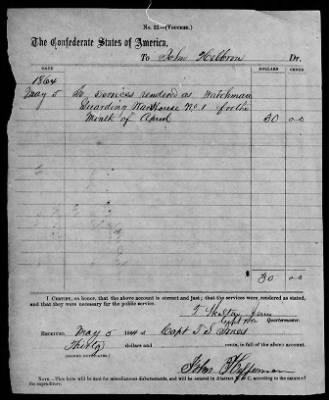 No. 22.—(Voucher.)
The Confederate States of America,
To John Heffernon Dr.
DATE DOLLARS CENTS
1864
May 5 To Services rendered as Watchman
Guarding Warehouse No. 1 for the
Month of April 30 00
30 00
I Certify, on honor, that the above account is correct and just; that the services were rendered as stated,
and that they were necessary for the public service.
Quartermaster.
Received, May 5 1864 of Capt T. S.
Thirty dollars and cents, in full of the above account.
(SIGNED DUPLICATES.)
John Heffernan
NOTE.—This form will be used for miscellaneous disbursements, and will be entered in Abstract B or C, according to the nature of
the expenditure.